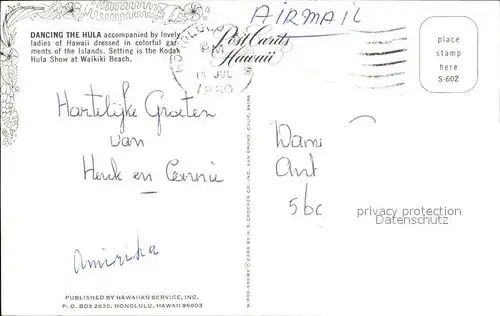 DANCING THE HULA accompanied by lovely
ladies of Hawaii dressed in colorful gar-
ments of the Islands. Setting is the Kodak
Hula Show at Waikiki Beach.
AIRMAIL
Post Cards
Hawaii
HONOLULU
PM
JUL
1980
place
stamp
here
S-602
Hartelijke Groeten
van
Henk en Connie
Amirika
PUBLISHED BY HAWAIIAN SERVICE, INC.
P. O. BOX 2835, HONOLULU, HAWAII 96803
MIRRO-KROME® CARD BY H. S. CROCKER CO. INC., SAN BRUNO, CALIF. 94066
privacy protection
Datenschutz